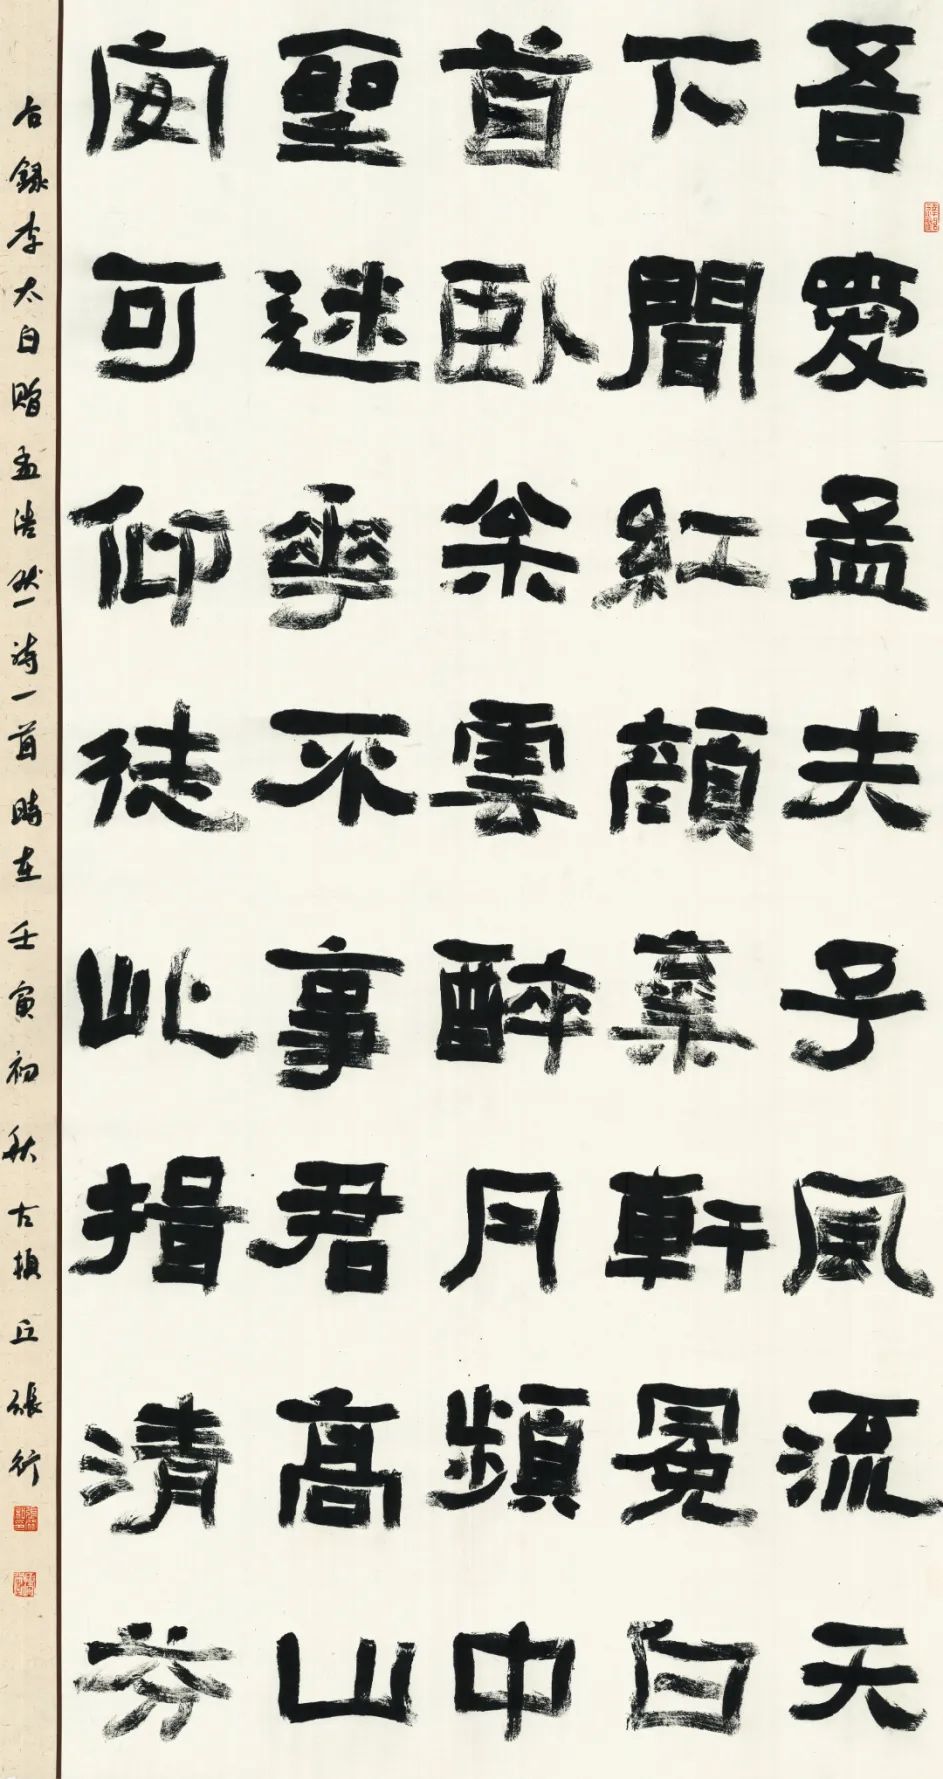 吾愛孟夫子風流天
下聞紅顏棄軒冕白
首臥枀雲醉月頻中
聖迷華不事君高山
安可仰徒此揖清芬
右錄李太白贈孟浩然詩一首時在壬寅初秋古頓丘張行